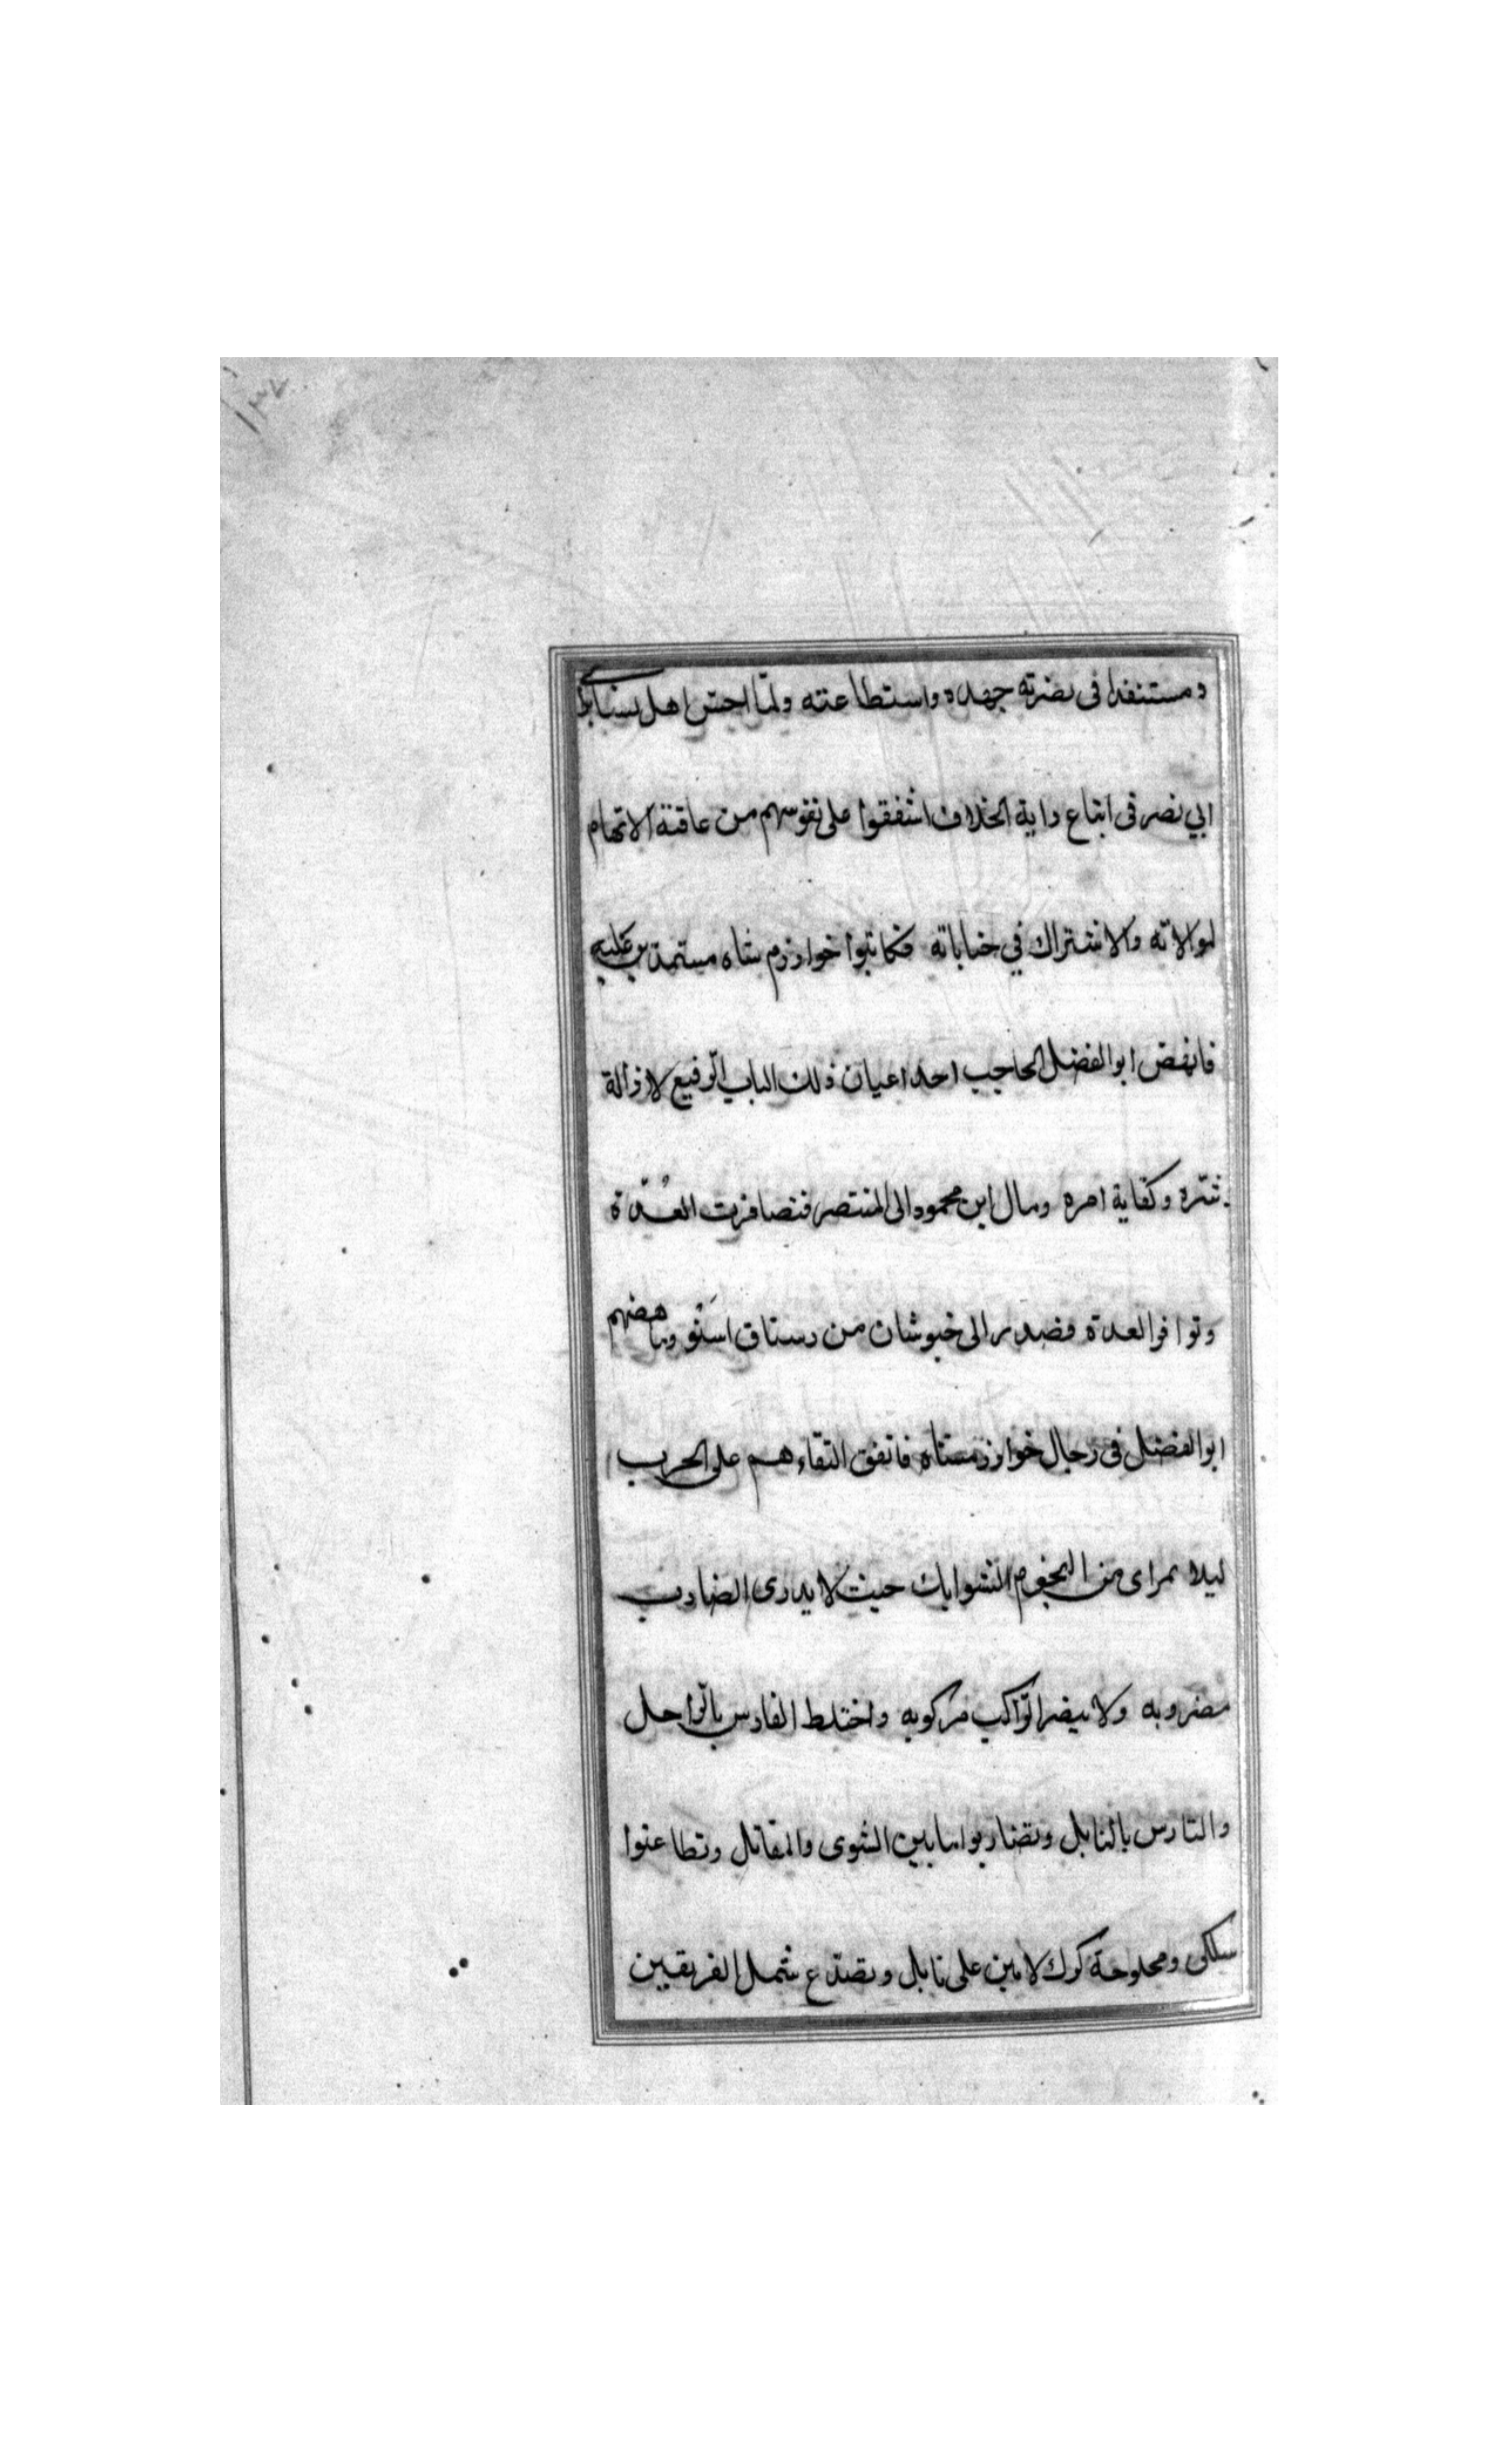 ١٣٤
و مستنفدا فى نصرته جهده واستطاعته ولمّا احسّ اهل نسا بابى
ابي نصر فى اتباع راية الخلاف اشفقوا على نفوسهم من عاقبة الاتهام
لموالاته والاشتراك في جناياته فكاتبوا خوارزم شاه مستمدين عليه
فانهض ابو الفضل الحاجب احد اعيان ذلك الباب الرّفيع لازالة
شرّه وكفاية امره ومال ابن محمود الى المنتصر فتصافرت العُدّة
وتوافر العدة فصدر الى خبوشان من رستاق استو وناهضهم
ابو الفضل فى رجال خوارزمشاه فاتفق التقاءهم على الحرب
ليلا بمراى من النجوم الشوابك حيث لا يدرى الضارب
مضروبه ولا يبصر الرّاكب مركوبه واختلط الفارس بالرّاجل
والتارس بالنابل وتضاربوا ما بين الشوى والمقاتل وتطاعنوا
سلكى ومخلوجة كرك لامين على نابل وتصدّع شمل الفريقين